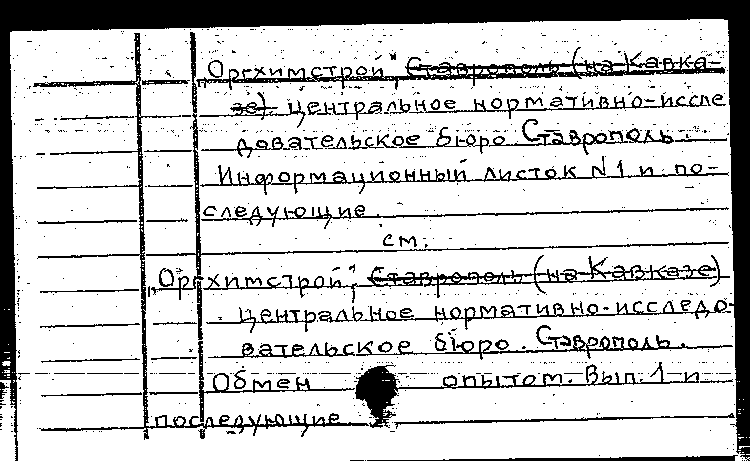 „Оргхимстрой", Ставрополь (на Кавка-
зе) центральное нормативно-иссле
довательское бюро Ставрополь.
Информационный листок N 1 и по-
следующие.
см.
„Оргхимстрой", Ставрополь (на Кавказе)
центральное нормативно-исследо-
вательское бюро. Ставрополь.
Обмен опытом. Вып. 1 и
последующие